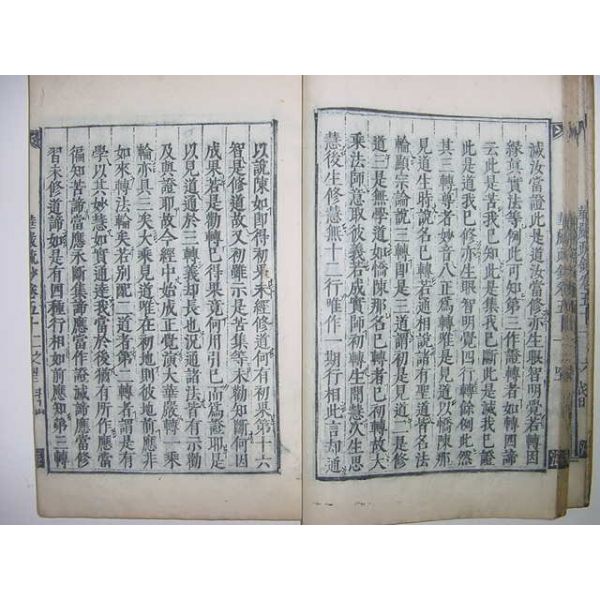 滅汝當證此是道汝當修亦生眼智明覺若轉因
緣真實法等例此可知第三作證轉者如轉四諦
云此是苦我已知此是集我已斷此是滅我已證
此是道我已修亦生眼智明覺四行轉餘例此然
其三轉尊者妙音八正爲轉唯是見道以憍陳那
見道生時說名已轉諸有聖道皆名法
輪顯宗論說三轉三道初轉是見道二是修
道三是無學道憍陳那名已轉者已初轉故大
乘法師意取彼義若成實師初轉生聞慧次生思
慧後生修慧無十二行唯作一期行相此言却通
以說陳如即得初果未經修道何有初果第十六
智是修道故又初雖示是苦集等未勸知斷何因
成果若是勸轉已得果竟何用引已而爲證耶是
以見道通於三轉義却長也況通諸法皆有示勸
及與證耶故今經中始成正覺演大華嚴轉一乘
輪亦具三矣大乘見道唯在初地則彼地前應非
如來轉法輪矣若別配二道者第二轉者謂是有
學以其妙慧如實通達我當於後猶有所作應當
徧知苦諦當應永斷集諦應當作證滅諦應當修
習未修道諦如是有四種行相如前應知第三轉
華嚴疏鈔卷五十